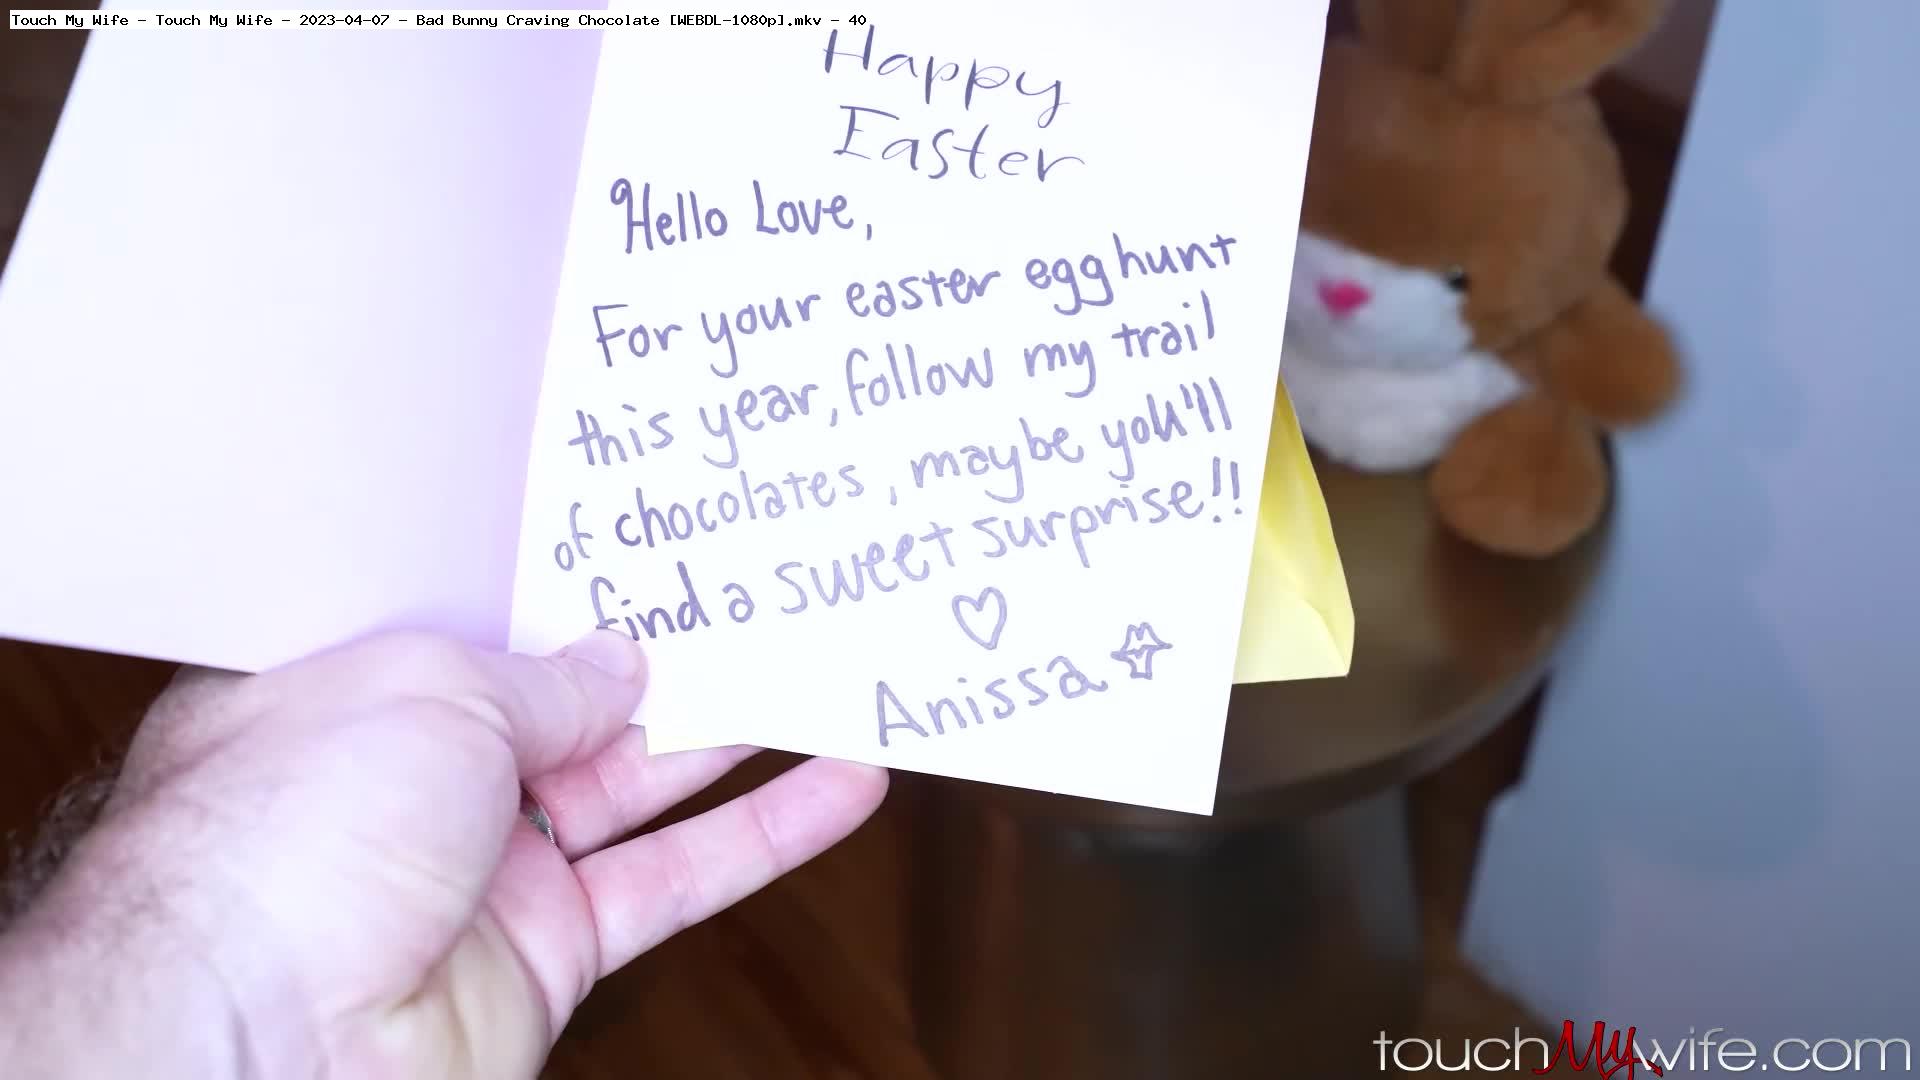 Touch My Wife - Touch My Wife - 2023-04-07 - Bad Bunny Craving Chocolate [WEBDL-1080p].mkv - 40
Happy
Easter
Hello Love,
For your easter egg hunt
this year, follow my trail
of chocolates, maybe you'll
find a sweet surprise!!
Anissa
touchMywife.com